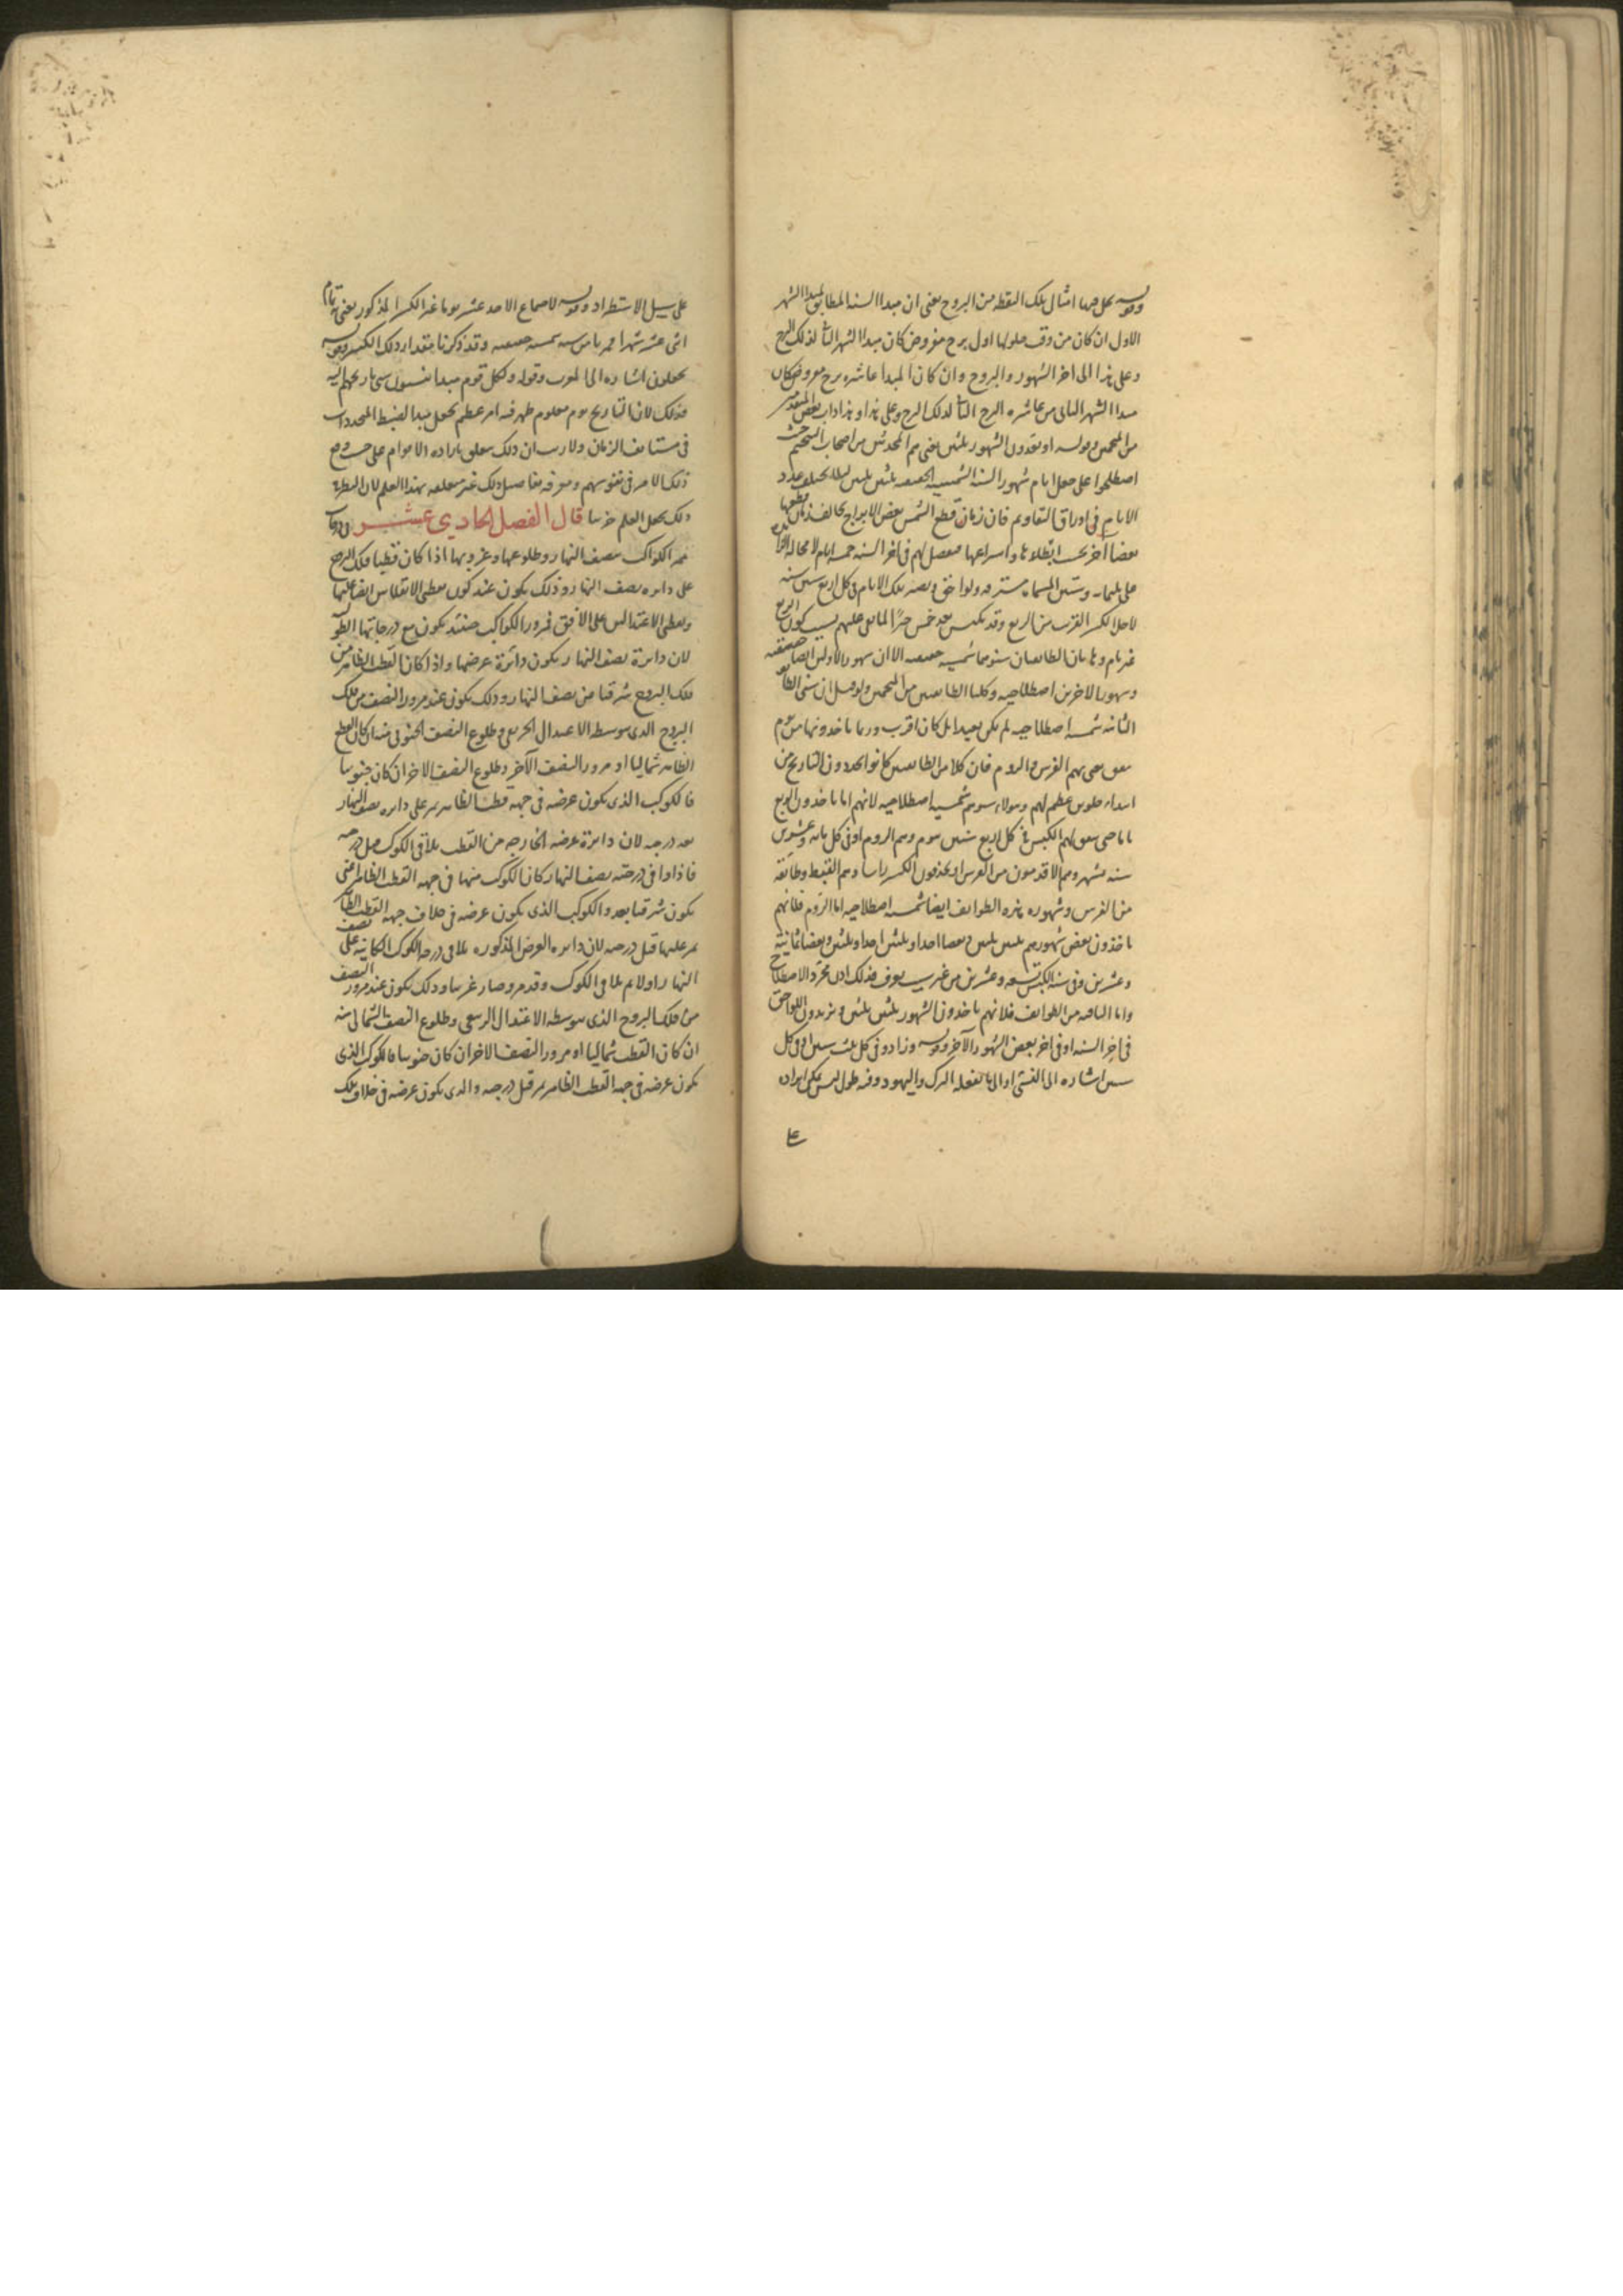 وقوله يحل فيها امثال تلك النقطه من البروج يعنى ان مبدا السنه المطابق لمبدا الشهر
الاول ان كان من وقت حلولها اول برج مفروض كان مبدا الشهر الثا لذلك البرج
وعلى هذا الى اخر الشهور والبروج وان كان المبدا عاشره برج مفروض كان
مبدا الشهر الثانى من عاشره البرج الثا لذلك البرج وعلى هذا وهذا داب بعض
من المنجمين وقوله او يعدون الشهور ثلثين يعنى هم المحدثين من اصحاب التنجيم حيث
اصطلحوا على جعل ايام شهور السنه الشمسيه الحقيقيه ثلثين ثلثين ليلا يختلف عدد
الايام فى اوراق التقاويم فان زمان قطع الشمس بعض الابراج يخالف زمان قطعها
بعضا آخر بحسب ابطاءها واسراعها فيفضل لهم فى اخر السنه خمسه ايام لا محاله
وستين المسماه مسترقه ولواحق ويصير تلك الايام فى كل اربع سنين سته
لاجل الكسر القريب من الربع وقد يكبس بعد خمس
غير تام وهاتان الطائفتان سنوهما شمسيه حقيقيه الا ان شهور الاولين ايضا حقيقيه
وشهور الاخرين اصطلاحيه وكلتا الطائفتين من المنجمين ولو قيل ان سنى الطا
الثانيه شمسيه اصطلاحيه لم يكن بعيدا بل كان اقرب وربما ياخذونها من يوم
يتفق يعنى بهم الفرس والروم فان كلا من الطائفتين كانوا ياخذون التاريخ من
ابتداء جلوس عظيم لهم وهولاء سنوهم شمسيه اصطلاحيه لانهم اما ياخذون الربع
تاما حتى يتفق لهم الكبس فى كل اربع سنين بيوم وهم الروم او فى كل مائه وعشرين
سنه بشهر وهم الاقدمون من الفرس او يحذفون الكسر راسا وهم القبط وطائفه
من الفرس وشهور هذه الطوائف ايضا شمسيه اصطلاحيه اما الروم فلانهم
ياخذون بعض شهورهم ثلثين ثلثين وبعضها احدا وثلثين احدا وثلثين وبعضا ثمانيه
وعشرين وفى سنه الكبس تسعه وعشرين من غير سبب يعرف فذلك اذن مجرد الاصطلاح
واما الباقيه من الطوائف فلانهم ياخذون الشهور ثلثين ثلثين ويزيدون اللواحق
فى اخر السنه او فى اخر بعض الشهور الآخر وقوله وزادو فى كل ثلث سنين او فى كل
سنين اشاره الى النسئ او الى ما تفعله الترك واليهود وفيه طول ليس يمكن ايراده
على
على سبيل الاستطراد وقوله لاجتماع الاحد عشر يوما غير الكسر المذكور يعنى به تمام
اثنى عشر شهرا قمريا من سنه شمسيه حقيقيه وقد ذكرنا مقدار ذلك الكسر وقوله
يجعلون اشاره الى العرب وقوله ولكل قوم مبدا ينسبون سنى تاريخهم اليه
فذلك لان التاريخ يوم معلوم ظهر فيه امر عظيم يجعل مبدا لضبط المتجددات
فى مستانف الزمان ولا ريب ان ذلك يتعلق باراده الاقوام على حسب وقع
ذلك الامر فى نفوسهم ومعرفه تفاصيل ذلك غير متعلقه بهذا العلم لان النظر
ذلك يجعل العلم جزئيا قال الفصل الحادي عشر فى درجات
ممر الكواكب بنصف النهار وطلوعها وغروبها اذا كان قطبا فلك البروج
على دايره نصف النهار وذلك يكون عند كون نقطتى الانقلابين ايضا عليها
ونقطتى الاعتدالين على الافق فمرور الكواكب حينئذ يكون مع درجاتها الطو
لان دائرة نصف النهار يكون دائرة عرضها واذا كان القطب الظاهر من
فلك البروج شرقيا من نصف النهار وذلك يكون عند مرور النصف من فلك
البروج الذى يتوسطه الاعتدال الخريفى وطلوع النصف الجنوبى منه ان كان القطب
الظاهر شماليا او مرور النصف الآخر وطلوع النصف الاخر ان كان جنوبيا
فالكوكب الذى يكون عرضه فى جهة قطب الظاهر يمر على دايره نصف النهار
بعد درجته لان دائرة عرضه الخارجه من القطب يلاقى الكوكب قبل درجته
فاذا وافى درجته نصف النهار كان الكوكب منها فى جهه القطب الظاهر اعنى
يكون شرقيا بعد والكوكب الذى يكون عرضه فى خلاف جهه القطب الظا
يمر عليها قبل درجته لان دايره العرض المذكوره يلاقى درجه الكوكب الكائنه على نصف
النهار اولا ثم يلاقى الكوكب وقد مر وصار غربيا وذلك يكون عند مرور النصف
من فلك البروج الذى يتوسطه الاعتدال الربيعى وطلوع النصف الشمالى منه
ان كان القطب شماليا او مرور النصف الاخر ان كان جنوبيا فالكوكب الذى
يكون عرضه فى جهه القطب الظاهر يمر قبل درجته والذى يكون عرضه فى خلاف تلك